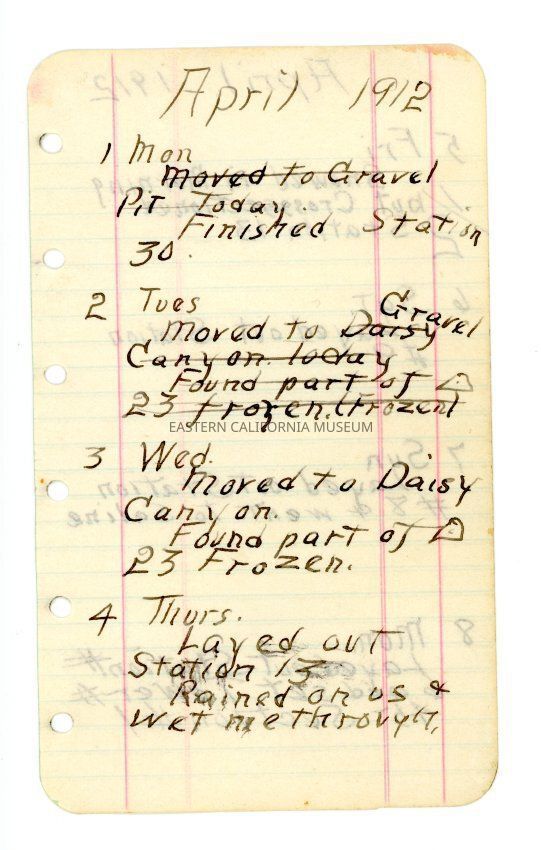 April 1912
1 Mon
moved to Gravel
Pit Today.
Finished Station
30.
2 Tues
Gravel
moved to Daisy
Canyon today
Found part of △
23 frozen. (Frozen)
EASTERN CALIFORNIA MUSEUM
3 Wed.
Moved to Daisy
Canyon.
Found part of △
23 Frozen.
4 Thurs.
Layed out
Station 13
Rained on us &
wet me through.